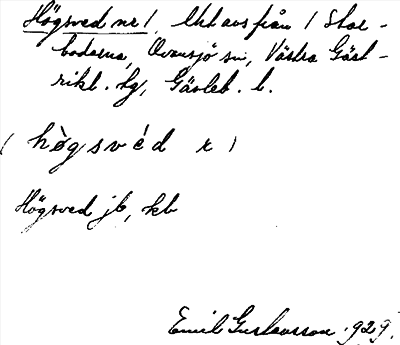 Högsved nr 1, Utt avs från 1 Stor-
bodarna, Ovansjö sn, Västra Gäst-
rikl. hg, Gävleb. l.
( hògsvéd r )
Högsved jb, kb
Emil Gustavsson 1929.